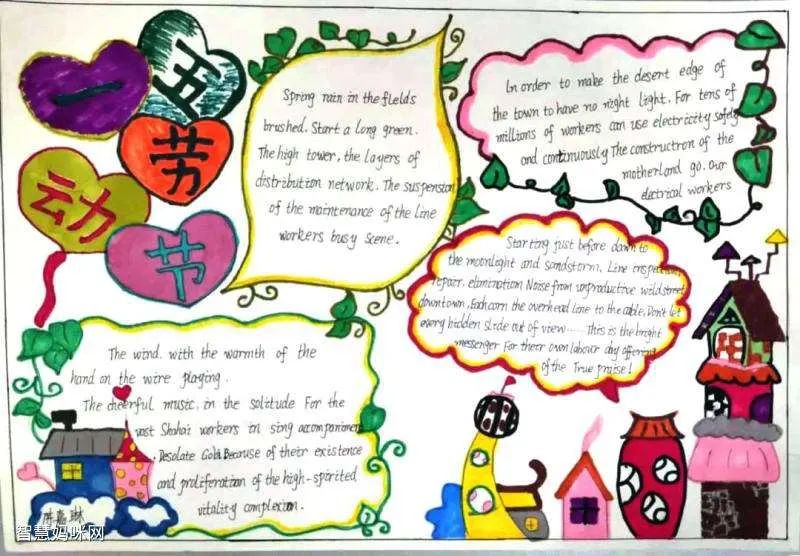 一
五
劳
动
节
Spring rain in the fields
brushed. Start a long green.
The high tower, the layers of
distribution network. The suspension
of the maintenance of the line
workers busy scene.
In order to make the desert edge of
the town to have no night light, For tens of
millions of workers can use electricity safely
and continuously The construction of the
motherland go. Our
electrical workers
Starting just before dawn to
the moonlight and sandstorm, Line inspection
repair, elimination Noise from unproductive wild street
downtown, Each corn the overhead line to the cable, Don't let
every hidden slide out of view...... This is the bright
messenger For their own labour day offering
of the True praise!
The wind. with the warmth of the
hand on the wire playing.
The cheerful music, in the solitude For the
vast Shahai workers in sing accompaniment
Desolate Gobi. Because of their existence
and proliferation of the high-spirited
vitality complexion.
智慧妈咪网